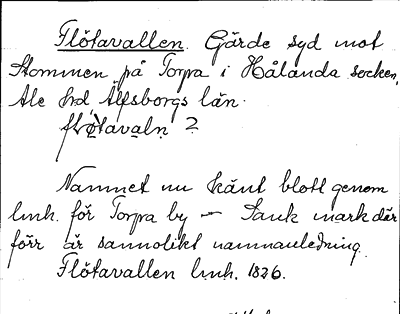 Flötavallen. Gärde syd mot
Stommen på Torpa i Hålanda socken,
Ale hd Älfsborgs län.
fløtavaln 2
Namnet nu känt blott genom
lmh. för Torpa by – Sank mark där
förr är sannolikt namnanledning.
Flötavallen lmh. 1826.